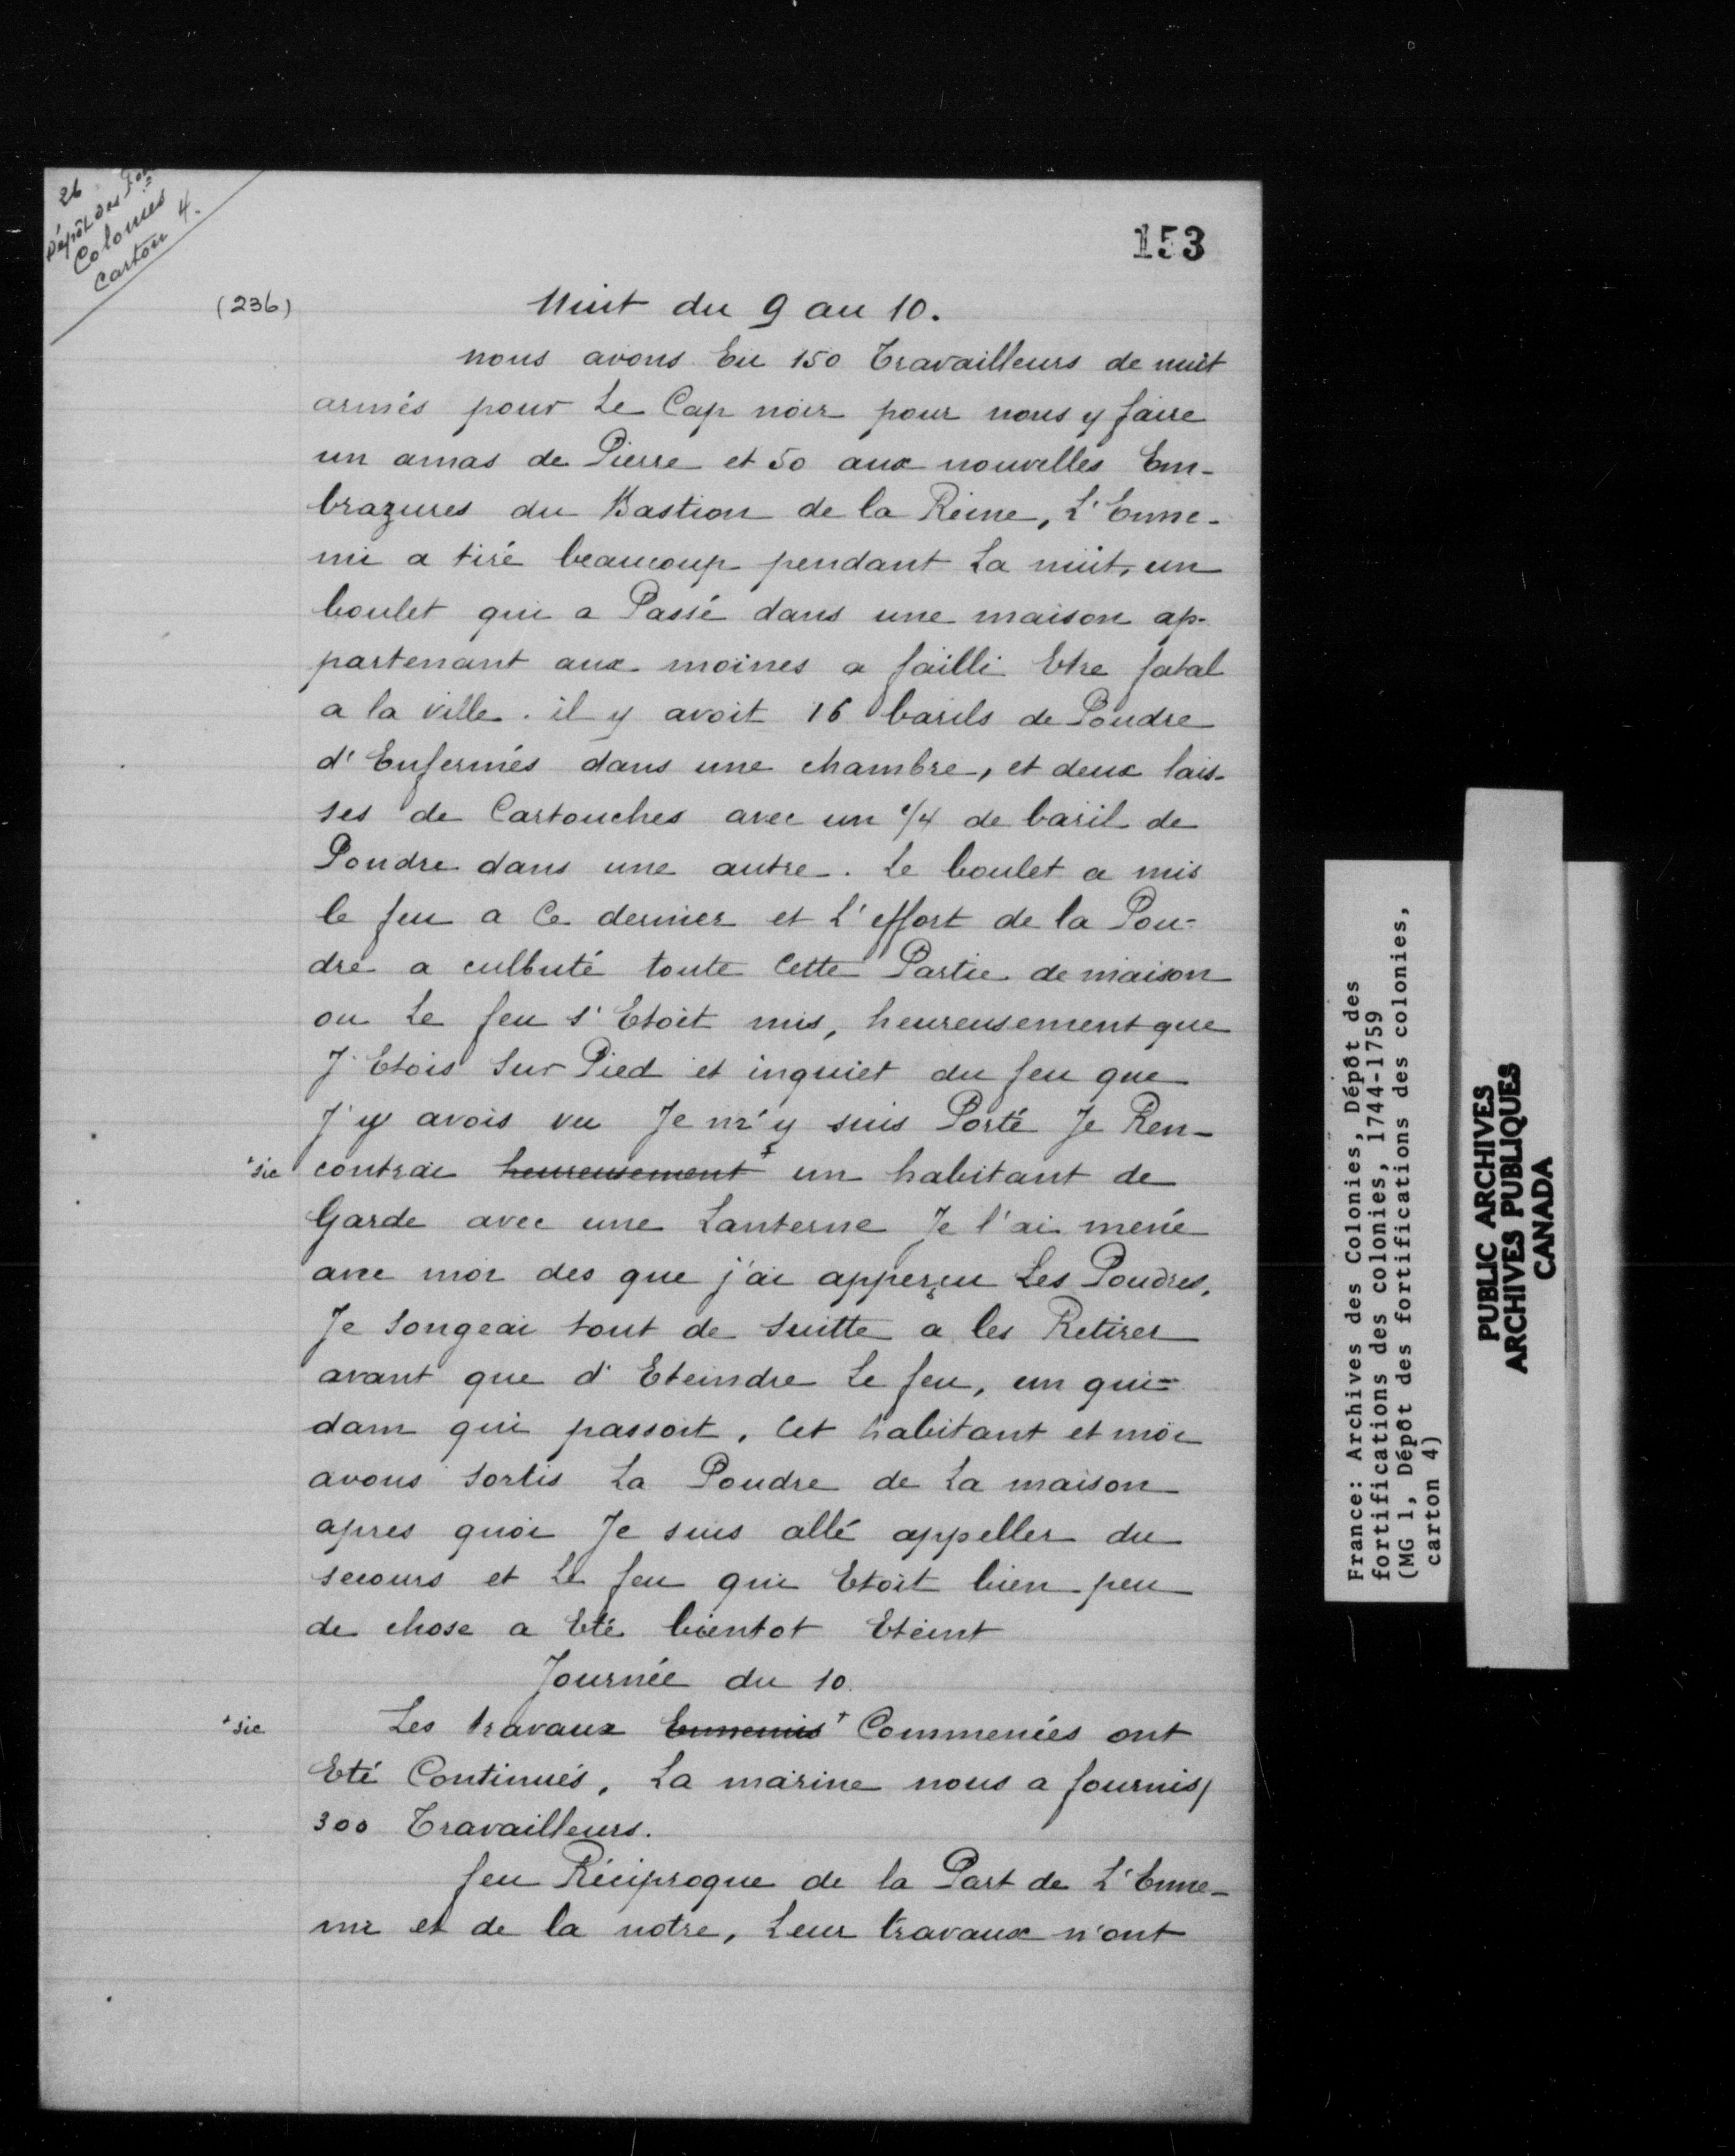 26
Dépôt des For=
Colonies
Carton 4.
153
(236)
Nuit du 9 au 10.
nous avons Eu 150 Travailleurs de nuit
armés pour Le Cap noir pour nous y faire
un amas de Pierre et 50 aux nouvelles Em-
brazures du Bastion de la Reine, L'Enne-
mi a tiré beaucoup pendant La nuit, un
boulet qui a Passé dans une maison ap-
partenant aux moines a failli Etre fatal
a la ville. il y avoit 16 barils de Poudre
d'Enfermés dans une chambre, et deux lais-
ses de Cartouches avec un 1/4 de baril de
Poudre dans une autre. Le boulet a mis
le feu a Ce dernier et L'effort de la Pou-
dre a culbuté toute Cette Partie de maison
ou Le feu s'Etoit mis, heureusement que
J'Etois Sur Pied et inquiet du feu que
J'y avois vu Je m'y suis Porté Je Ren-
+sic contrai heureusement + un habitant de
Garde avec une Lanterne Je l'ai mené
avec moi des que j'ai apperçu Les Poudres,
Je Songeai tout de Suitte a les Retirer
avant que d'Eteindre Le feu, un qui=
dam qui passoit, Cet habitant et moi
avons Sortis La Poudre de La maison
apres quoi Je suis allé appeller du
secours et Le feu qui Etoit bien peu
de chose a Eté bientot Eteint
Journée du 10.
+sic Les travaux Ennemis + Commencés ont
Eté Continués, La marine nous a fournis/
300 Travailleurs.
feu Réciproque de la Part de L'Enne-
mi et de la notre, Leur travaux n'ont
France: Archives des Colonies, Dépôt des
fortifications des colonies, 1744-1759
(MG 1, Dépôt des fortifications des colonies,
carton 4)
PUBLIC ARCHIVES
ARCHIVES PUBLIQUES
CANADA